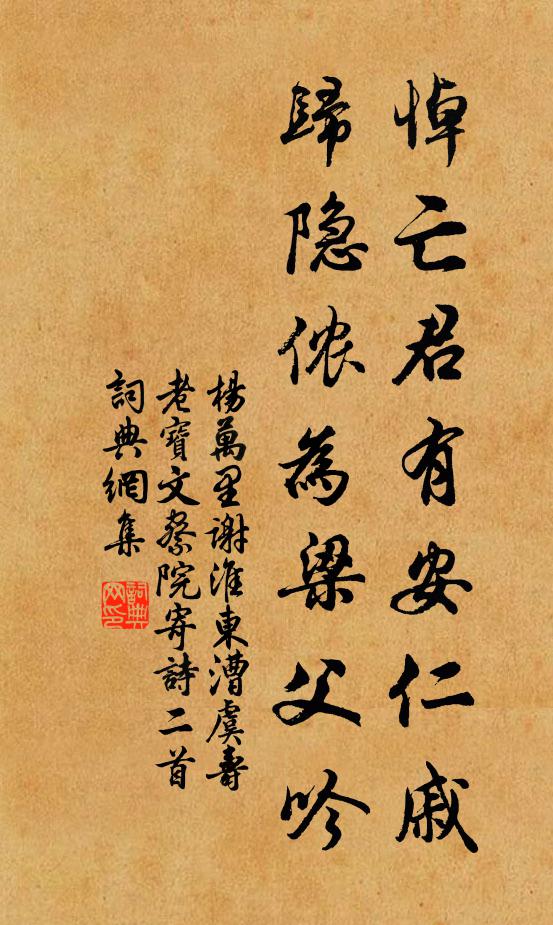 悼亡君有安仁戚
歸隱儂為梁父吟
楊萬里謝淮東漕虞壽
老寶文察院寄詩二首
詞典網集
詞典網印